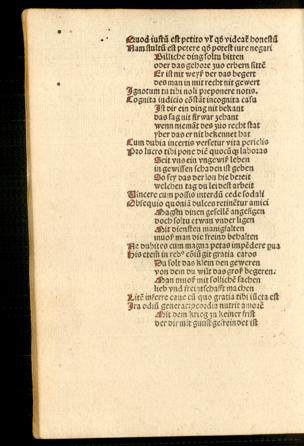 Quod iustū est petito vl' qd videať honestū
Nam stultū est petere qd potest iure negari
Billiche ding soltu bitten
oder das gehore zuo erbern sittē
Er ist nit weyß der das begert
des man in mit recht nit gewert
Ignotum tu tibi noli preponere notis.
Cognita iudicio cōstāt incognita casu
Ist dir ein ding nit bekant
das sag nit fir war zehant
wenn niemāt des zuo recht stat
yber das er nit bekennet hat
Cum dubia incertis versetur vita periclis
Pro lucro tibi pone diē quocūqȝ laboras
Seit vns ein vngewiß leben
in gewissen schaden ist geben
So sey das der lon die bereit
welchen tag du leidest arbeit
Vincere cum possis interdū cede sodali
Obsequio quoniā dulces retinētur amici
Magstu dinen gesellē angesigen
doch soltu etwan vnder ligen
Mit diensten manigfalten
muoß man die freind behalten
Ne dubites cum magna petas impēdere pua
His etesi in rebꝰ cōiūgit gratia caros
Du solt das klein den geweren
von dem du wilt das groß begeren.
Man muoß mit solliche sachen
lieb vnd freintschafft machen
Litē inferre caue cū quo gratia tibi iūcta est
Ira odiū generat cōcordia nutrit amorē
Mit dem krieg zu keiner frist
der dir mit gunst gefreindet ist